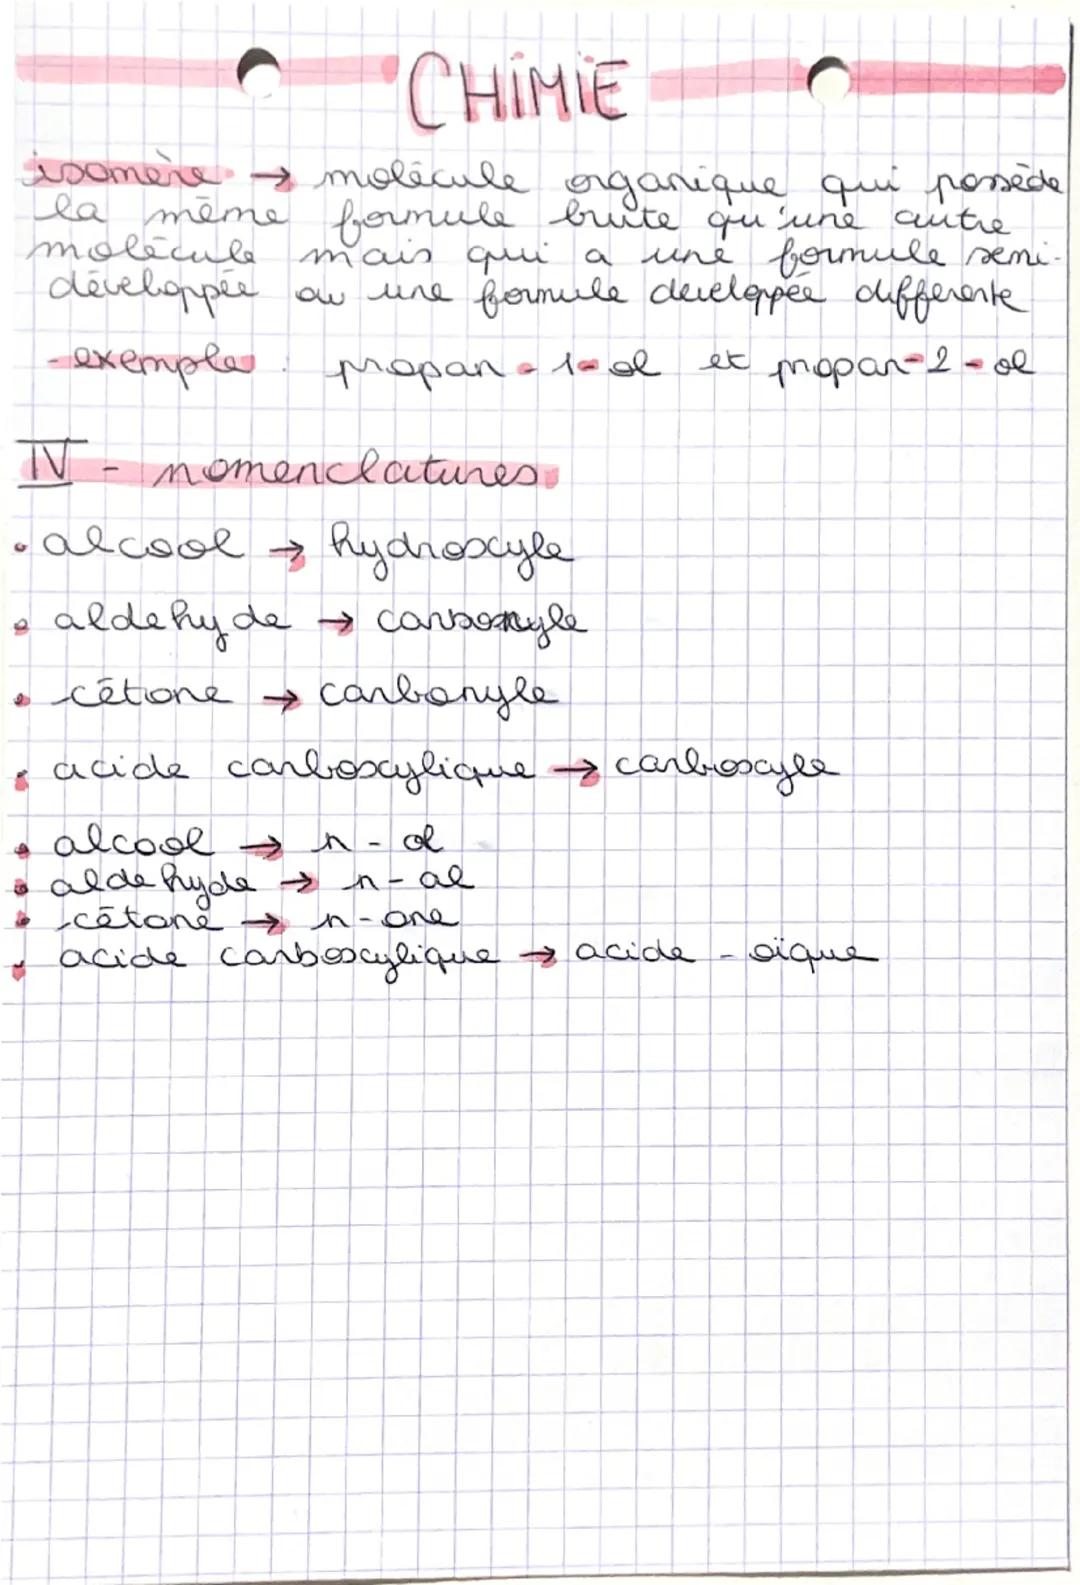 CHIMIE
isomère → molécule organique qui possède
la même formule brute qu'une autre
molécule mais qui a une formule semi-
développée ou une formule developpée differente
- exemple : propan - 1 - ol et propan - 2 - ol
IV - nomenclatures
• alcool → hydroxyle
• aldehyde → carbonyle
• cétone → carbonyle
• acide carboxylique → carboxyle
• alcool → n - ol
• aldehyde → n - al
• cétone → n - one
• acide carboxylique → acide - oïque